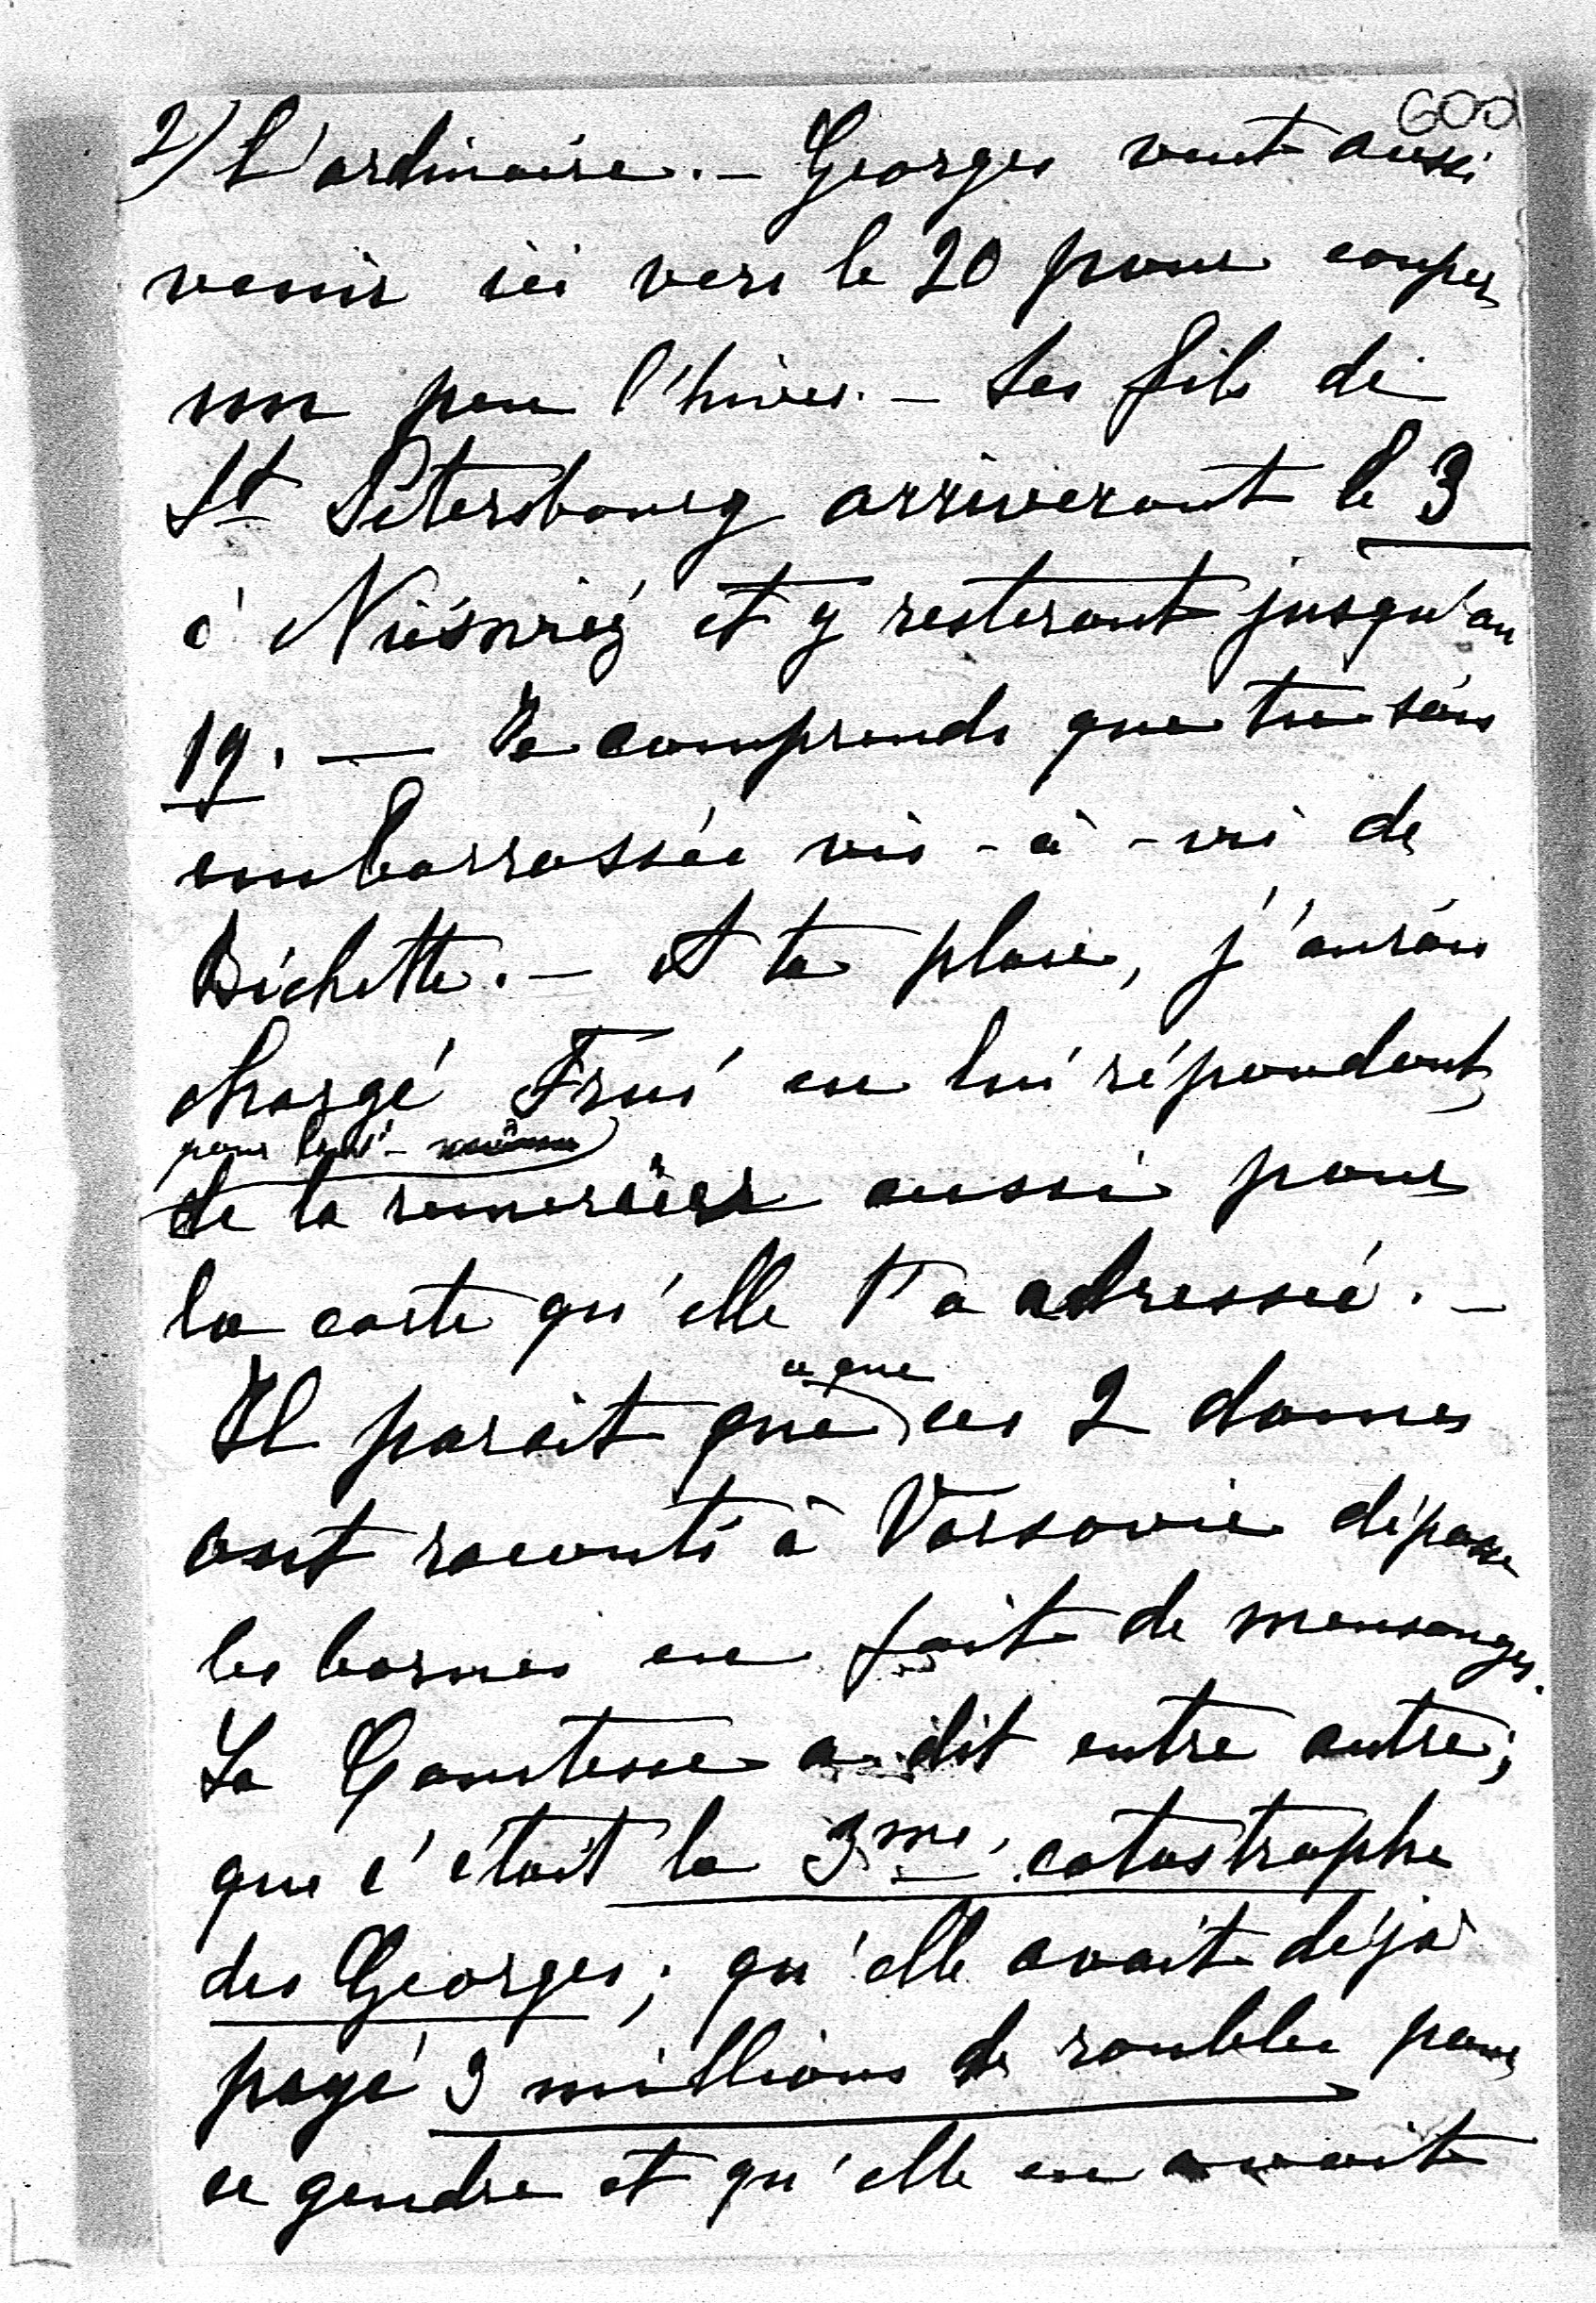 600
2) l'ordinaire. – Georges veut aussi
venir ici vers le 20 pour couper
un peu l'hiver. – Les fils de
St Petersbourg arriveront le 3
à Nieśwież et y resteront jusqu'au
19. — Je comprends que tu sois
embarrassée vis-à-vis de
Bichette. – A ta place, j'aurais
chargé Frui en lui répondant
pour lui-même
de la remercier aussi pour
la carte qu'elle t'a adressée. –
Il parait que ces 2 dames
ce que
ont raconté à Varsovie dépasse
les bornes en fait de mensonges.
La Comtesse a dit entre autre;
que c'était la 3me catastrophe
des Georges; qu'elle avait déjà
payé 3 millions de roubles pour
ce gendre et qu'elle en avait